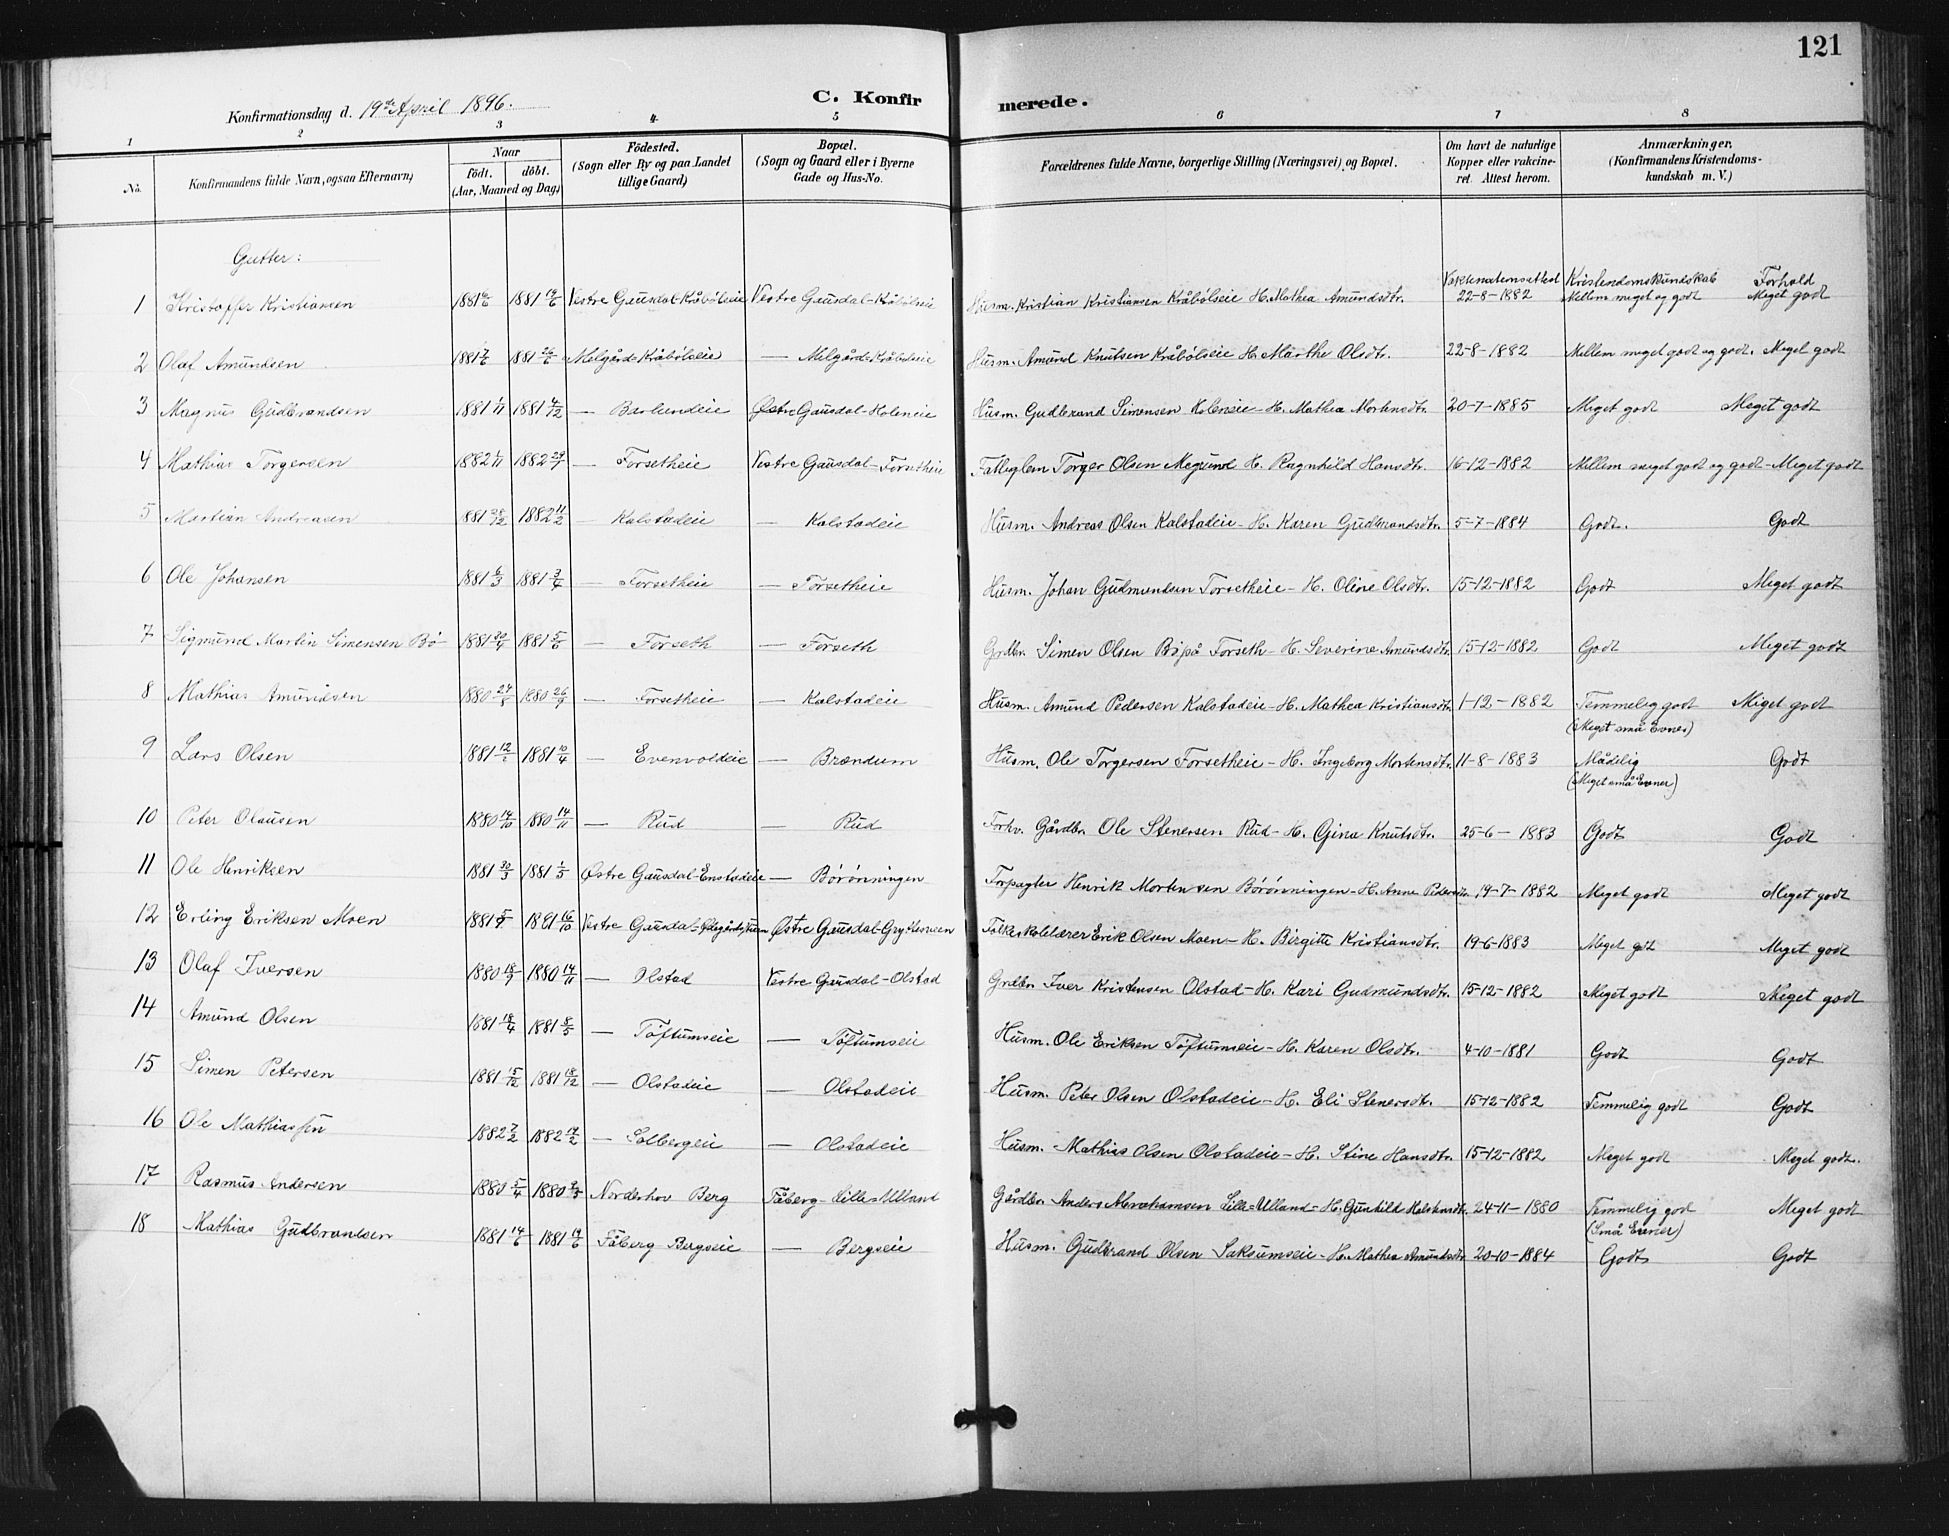 121
Konfirmationsdag d. 19de April 1896.
C. Konfirmerede.
1 2 3 4 5 6 7 8
No. Konfirmandens fulde Navn, ogsaa Efternavn) Naar födt. döbt. (Aar, Maaned og Dag) Födested. (Sogn eller By og paa Landet tillige Gaard) Bopæl. (Sogn og Gaard eller i Byerne Gade og Hus-No. Forældrenes fulde Navne, borgerlige Stilling (Næringsvei) og Bopæl. Om havt de naturlige Kopper eller vakcineret. Attest herom. Anmærkninger, (Konfirmandens Kristendomskundskab m. V.)
Gutter:
Kristendomskundskab Forhold
1 Kristoffer Kristiansen 1881 1881 19/6 Vestre Gausdal-Kråbølseie Vestre Gausdal-Kråbølseie Husm. Kristian Kristiansen Kråbølseie H. Mathea Amundsdtr. 22-8-1882 Mellem meget og godt Meget godt
2 Olaf Amundsen 1881 1881 26/6 Melgård-Kråbølseie — Melgård-Kråbølseie Husm. Amund Knutsen Kråbølseie H. Marthe Olsdtr. 22-8-1882 Mellem meget godt og godt. Meget godt
3 Magnus Gudbrandsen 1881 1/11 1881 4/12 — Barlundeie Østre Gausdal-Holeneie Husm. Gudbrand Simensen Holeneie-H. Mathea Mortensdtr. 20-7-1885 Meget godt Meget godt
4 Mathias Torgersen 1882 1882 — Forsetheie Vestre Gausdal-Forsetheie Fatteglem Torger Olsen Megrund H. Ragnhild Hansdtr. 16-12-1882 Mellem meget godt og godt-Meget godt
5 Martin Andreasen 1881 28/12 1882 11/2 — Kalstadeie — Kalstadeie Husm. Andreas Olsen Kalstadeie-H. Karen Gudbrandsdtr. 5-7-1884 Godt. Godt
6 Ole Johansen 1881 6/3 1881 3/4 — Forsetheie — Forsetheie Husm. Johan Gudmundsen Forsetheie-H. Oline Olsdtr. 15-12-1882 Godt Meget godt
7 Sigmund Martin Simensen Bø- 1881 30/4 1881 5/6 — Forseth — Forseth Grdbr. Simen Olsen Bø på Forseth-H. Severine Amundsdtr. 15-12-1882 Godt Meget godt
8 Mathias Amundsen 1880 24/8 1880 26/9 — Forsetheie — Kalstadeie Husm. Amund Pedersen Kalstadeie-H. Mathea Kristiansdtr. 1-12-1882 Temmelig godt Meget godt
(Meget små Evner)
9 Lars Olsen 1881 1881 10/4 — Evenvoldeie — Brændum Husm. Ole Torgersen Forsetheie-H. Ingeborg Mortensdtr. 11-8-1883 Mådelig Godt
(Meget små Evner)
10 Peter Olausen 1880 14/10 1880 14/11 — Rud — Rud Forhv. Gårdbr. Ole Stenersen Rud-H. Gina Knutsdtr. 25-6-1883 Godt Godt
11 Ole Henriksen 1881 30/3 1881 1/5 Østre Gausdal-Enstadeie — Børønningen Forpagter Henrik Mortensen Børønningen-H. Anne Pedersdtr. 19-7-1882 Meget godt Meget godt
12 Erling Eriksen Moen 1881 5/9 1881 16/10 Vestre Gausdal- Østre Gausdal- Folkeskolelærer Erik Olsen Moen-H. Birgitte Kristiansdtr. 19-6-1883 Meget godt Meget godt
13 Olaf Iversen 1880 18/9 1880 14/11 — Olstad Vestre Gausdal-Olstad Grdbr. Iver Kristensen Olstad-H. Kari Gudmundsdtr. 15-12-1882 Meget godt Meget godt
14 Amund Olsen 1881 18/4 1881 8/5 — Tøftumseie — Tøftumseie Husm. Ole Eriksen Tøftumseie-H. Karen Olsdtr. 4-10-1881 Godt Godt
15 Simen Petersen 1881 15/12 1881 18/12 — Olstadeie — Olstadeie Husm. Peter Olsen Olstadeie-H. Eli Stenersdt. 15-12-1882 Temmelig godt Godt
16 Ole Mathiassen 1882 7/2 1882 14/2 — Solbergeie — Olstadeie Husm. Mathias Olsen Olstadeie-H. Stine Hansdtr. 15-12-1882 Meget godt Meget godt.
17 Rasmus Andersen 1880 5/4 1880 Norderhov Berg Fåberg-Lille-Ulland Gårdbr. Anders Abrahamsen Lille-Ulland-H. Gunhild 24-11-1880 Temmelig god Meget godt
(Små Evner)
18 Mathias Gudbrandsen 1881 14/6 1881 19/6 Fåberg Bergseie — Bergseie Husm. Gudbrand Olsen Saksumseie-H. Mathea Amundsdtr. 20-10-1884 Godt Godt